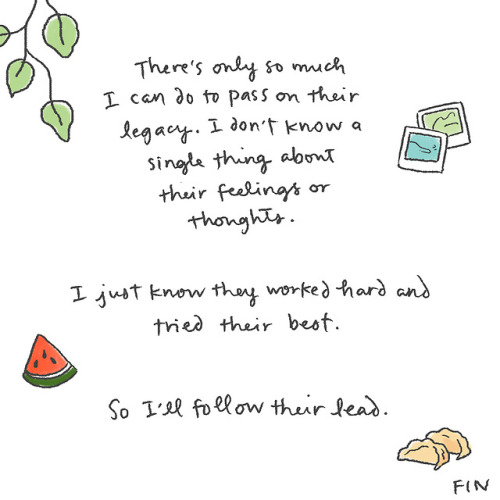 There's only so much
I can do to pass on their
legacy. I don't know a
single thing about
their feelings or
thoughts.
I just know they worked hard and
tried their best.
So I'll follow their lead.
FIN